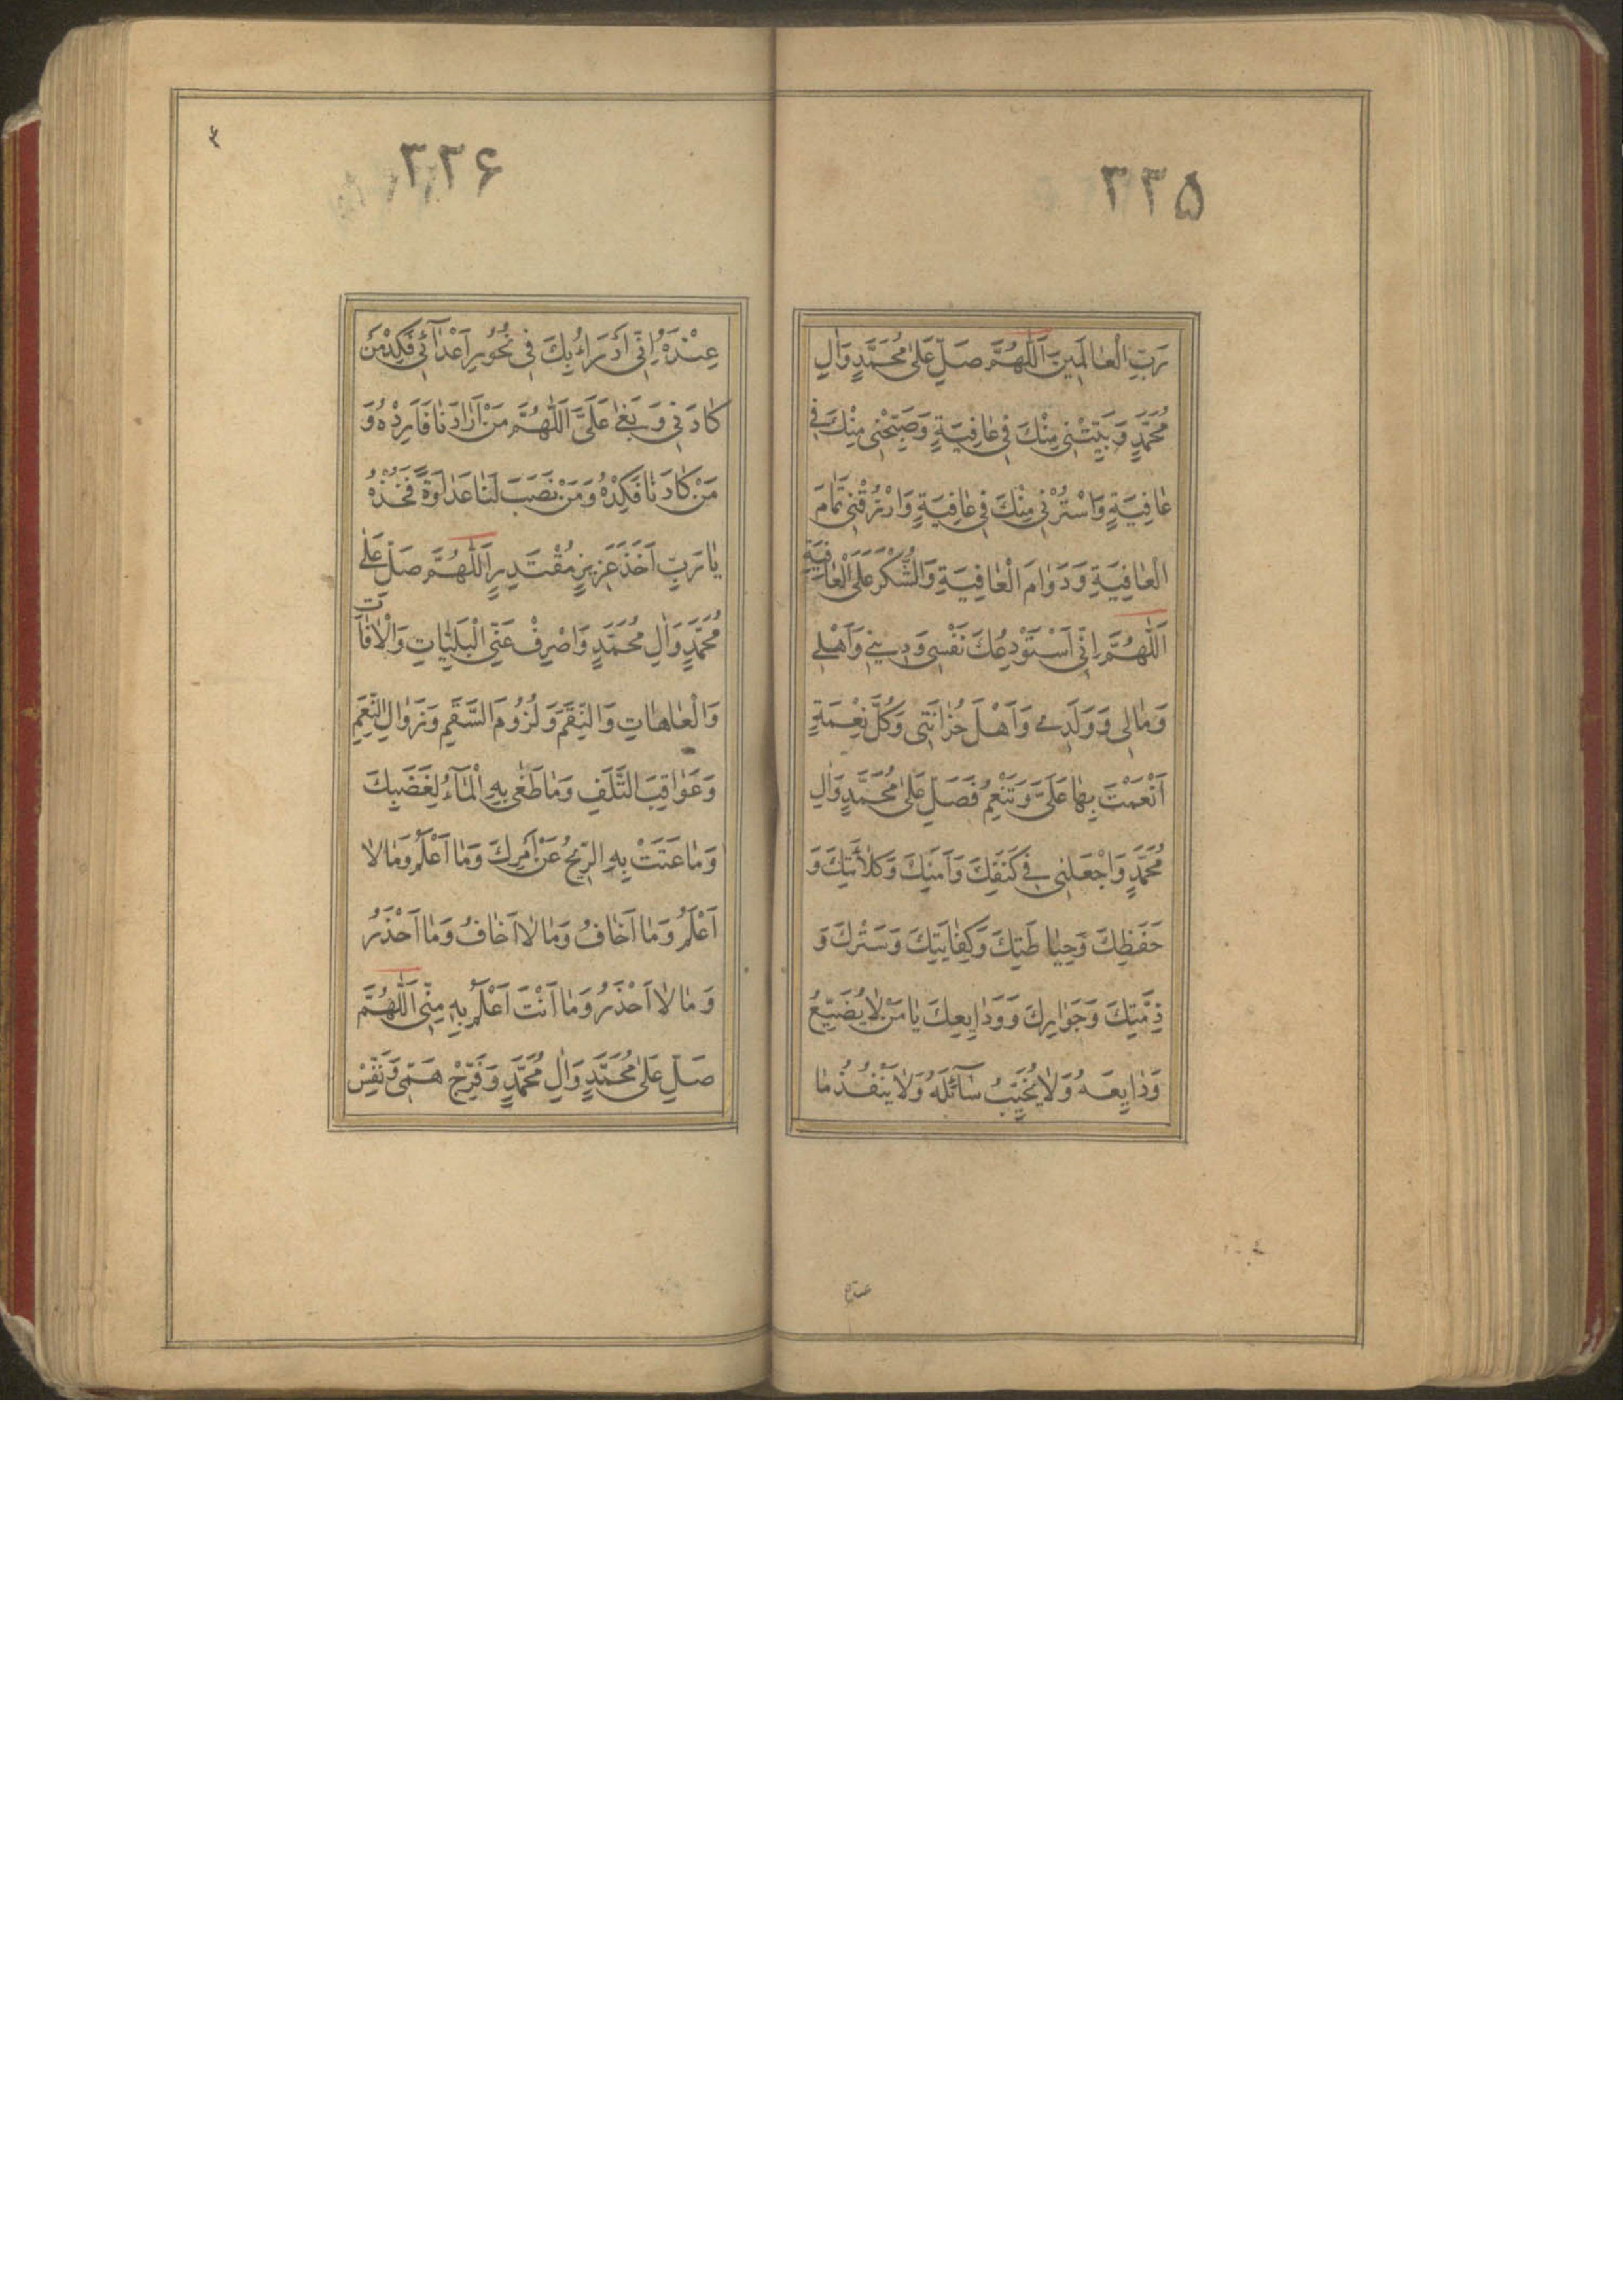 ۳۳۵
رَبِّ الْعٰالَمِينَ اَللّٰهُمَّ صَلِّ عَلىٰ مُحَمَّدٍ وَاٰلِ
مُحَمَّدٍ وَبَيِّتْنِى مِنْكَ فِى عٰافِيَةٍ وَصَبِّحْنِى مِنْكَ فِى
عٰافِيَةٍ وَاسْتُرْنِى مِنْكَ فِى عٰافِيَةٍ وَارْزُقْنِى تَمٰامَ
الْعٰافِيَةِ وَدَوٰامَ الْعٰافِيَةِ وَالشُّكْرَ عَلَى الْعٰافِيَةِ
اَللّٰهُمَّ اِنِّى اَسْتَوْدِعُكَ نَفْسِى وَدِينِى وَاَهْلِى
وَمٰالِى وَوَلَدِى وَاَهْلَ حُزٰانَتِى وَكُلَّ نِعْمَةٍ
اَنْعَمْتَ بِهٰا عَلَىَّ وَتُنْعِمُ فَصَلِّ عَلىٰ مُحَمَّدٍ وَاٰلِ
مُحَمَّدٍ وَاجْعَلْنِى فِى كَنَفِكَ وَاَمْنِكَ وَكَلٰائَتِكَ وَ
حِفْظِكَ وَحِيٰاطَتِكَ وَكِفٰايَتِكَ وَسَتْرِكَ وَ
ذِمَّتِكَ وَجَوٰارِكَ وَوَدٰايِعِكَ يٰا مَنْ لٰا يُضَيِّعُ
وَدٰايِعَهُ وَلٰا يُخَيِّبُ سٰآئِلَهُ وَلٰا يَنْفُدُ مٰا
۳۳۶
عِنْدَهُ اِنِّى اَدْرَاءُ بِكَ فِى نُحُورِ اَعْدٰآئِى فَكِدْ مَنْ
كٰادَنِى وَبَغىٰ عَلَىَّ اَللّٰهُمَّ مَنْ اَرٰادَنٰا فَاَرِدْهُ وَ
مَنْ كٰادَنٰا فَكِدْهُ وَمَنْ نَصَبَ لَنٰا عَدٰاوَةً فَخُذْهُ
يٰا رَبِّ اَخْذَ عَزِيزٍ مُقْتَدِرٍ اَللّٰهُمَّ صَلِّ عَلىٰ
مُحَمَّدٍ وَاٰلِ مُحَمَّدٍ وَاصْرِفْ عَنِّى الْبَلِيّٰاتِ وَالْاٰفٰاتِ
وَالْعٰاهٰاتِ وَالنِّقَمَ وَلُزُومَ السَّقَمِ وَزَوٰالَ النِّعَمِ
وَعَوٰاقِبَ التَّلَفِ وَمٰا طَغىٰ بِهِ الْمٰآءُ لِغَضَبِكَ
وَمٰا عَتَتْ بِهِ الرِّيحُ عَنْ اَمْرِكَ وَمٰا اَعْلَمُ وَمٰا لٰا
اَعْلَمُ وَمٰا اَخٰافُ وَمٰا لٰا اَخٰافُ وَمٰا اَحْذَرُ
وَمٰا لٰا اَحْذَرُ وَمٰا اَنْتَ اَعْلَمُ بِهِ مِنِّى اَللّٰهُمَّ
صَلِّ عَلىٰ مُحَمَّدٍ وَاٰلِ مُحَمَّدٍ وَفَرِّجْ هَمِّى وَنَفِّسْ